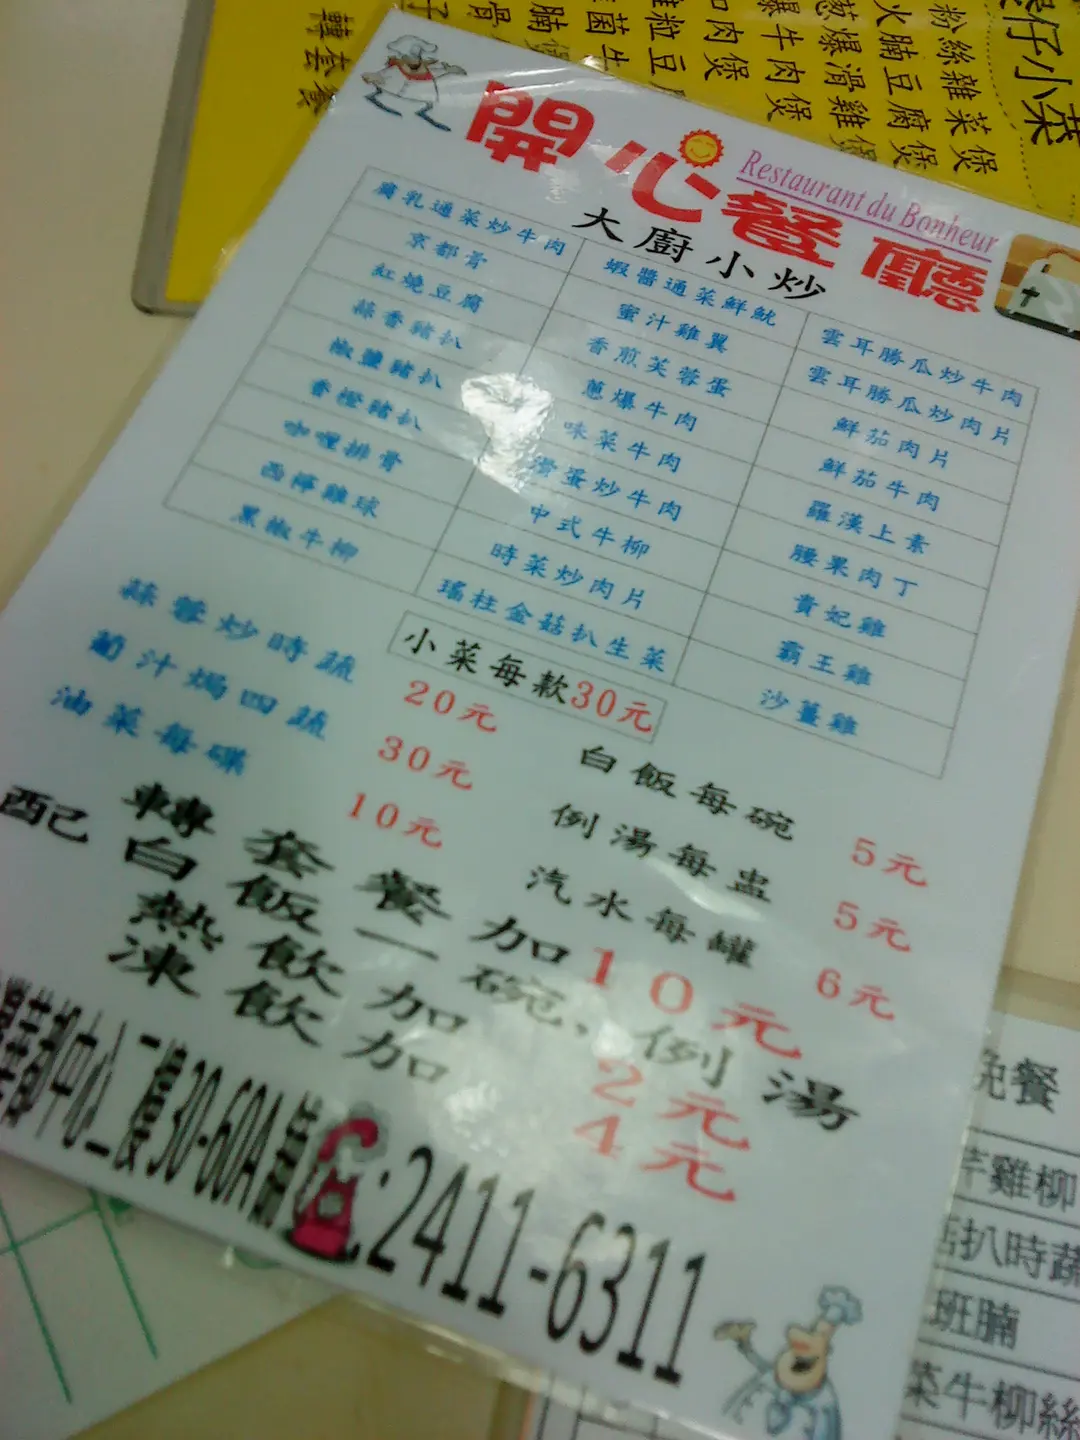 開心餐廳
Restaurant du Bonheur
大廚小炒
腐乳通菜炒牛肉
京都骨
紅燒豆腐
蒜香豬扒
椒鹽豬扒
香橙豬扒
咖喱排骨
西檸雞球
黑椒牛柳
蝦醬通菜鮮魷
蜜汁雞翼
香煎芙蓉蛋
蔥爆牛肉
味菜牛肉
滑蛋炒牛肉
中式牛柳
時菜炒肉片
瑤柱金菇扒生菜
雲耳勝瓜炒牛肉
雲耳勝瓜炒肉片
鮮茄肉片
鮮茄牛肉
羅漢上素
腰果肉丁
貴妃雞
霸王雞
沙薑雞
小菜每款30元
蒜蓉炒時蔬 20元
葡汁焗四蔬 30元
油菜每碟 10元
白飯每碗 5元
例湯每盅 5元
汽水每罐 6元
轉套餐加10元
配己白飯一碗，例湯
熱飲加2元
凍飲加4元
都中心二樓30-60A號
:2411-6311
仔小菜
粉絲雜菜煲
火腩豆腐煲
蔥爆滑雞煲
爆牛肉煲
轉套餐
晚餐
雞柳
扒時蔬
班腩
菜牛柳絲